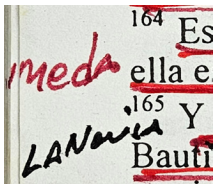 164 Es
meda
ella e
165 Y
LANovia
Bauti